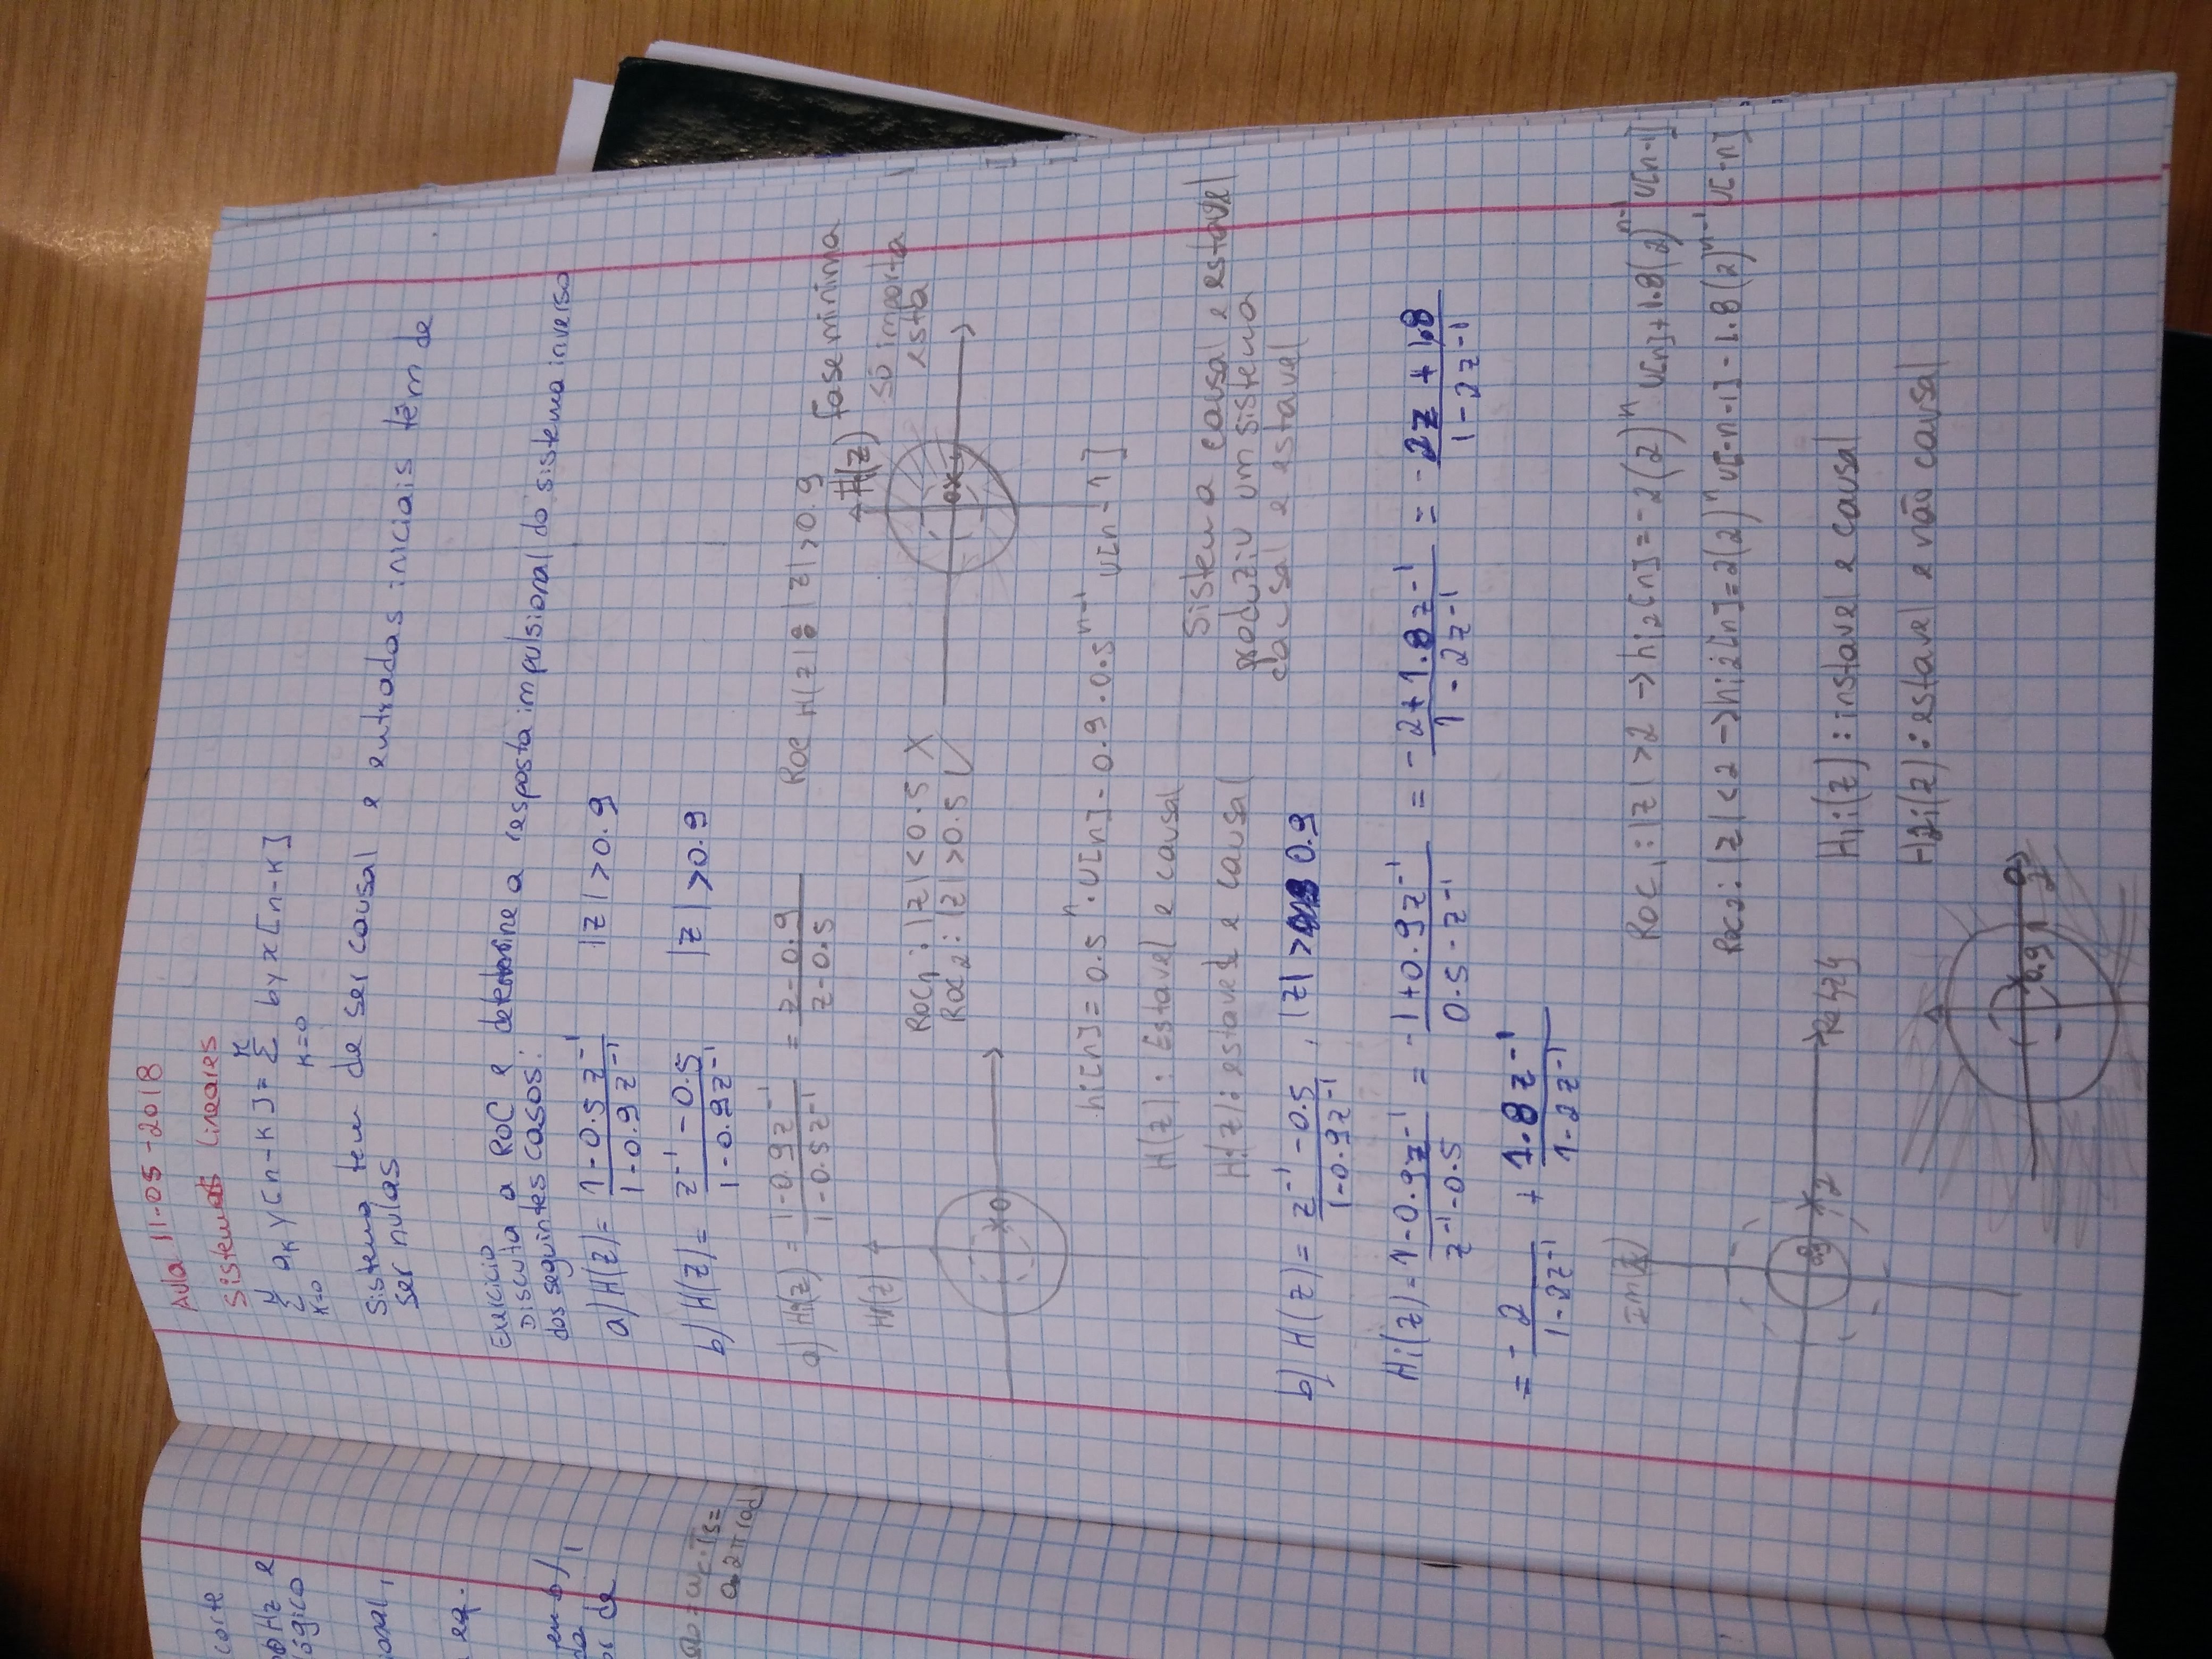 corte
Hz e
lógico
onal,
eq.
em b),
da
or de
= ωc.Ts=
0.2π rad
Aula 11-05-2018
Sistemas Lineares
N
Σ aₖ y[n-k] = Σ by x[n-k]
k=0 k=0
Sistema tem de ser causal e entradas iniciais têm de
ser nulas
Exercício
Discuta a ROC e determine a resposta impulsional do sistema inverso
dos seguintes casos:
a) H(z) = (1-0.5z⁻¹)/(1-0.9z⁻¹) |z|>0.9
b) H(z) = (z⁻¹-0.5)/(1-0.9z⁻¹) |z|>0.9
a) Hi(z) = (1-0.9z⁻¹)/(1-0.5z⁻¹) = (z-0.9)/(z-0.5) ROC H(z): |z|>0.9
fase minima
Hi(z)
H(z)
só importa
esta
ROC₁: |z|<0.5 X
ROC₂: |z|>0.5 ✓
hi[n] = 0.5ⁿ.u[n] - 0.9.0.5ⁿ⁻¹ u[n-1]
H(z): Estavel e causal
Hi(z): estavel e causal
Sistema causal e estavel
produziu um sistema
causal e estavel
b) H(z) = (z⁻¹-0.5)/(1-0.9z⁻¹), |z|>0.9
Hi(z) = (1-0.9z⁻¹)/(z⁻¹-0.5) = (-1+0.9z⁻¹)/(0.5-z⁻¹) = (-2+1.8z⁻¹)/(1-2z⁻¹) = (-2z+1.8)/(1-2z⁻¹)
= -2/(1-2z⁻¹) + 1.8z⁻¹/(1-2z⁻¹)
Im(z)
ROC₁: |z|>2 → hi₂[n] = -2(2)ⁿ u[n] + 1.8(2)ⁿ⁻¹ u[n-1]
ROC₂: |z|<2 → hi2[n] = 2(2)ⁿ u[-n-1] - 1.8(2)ⁿ⁻¹ u[-n]
0.9 2 Re{z}
H₁i(z): instavel e causal
H2i(z): estavel e não causal
0.9 1 2